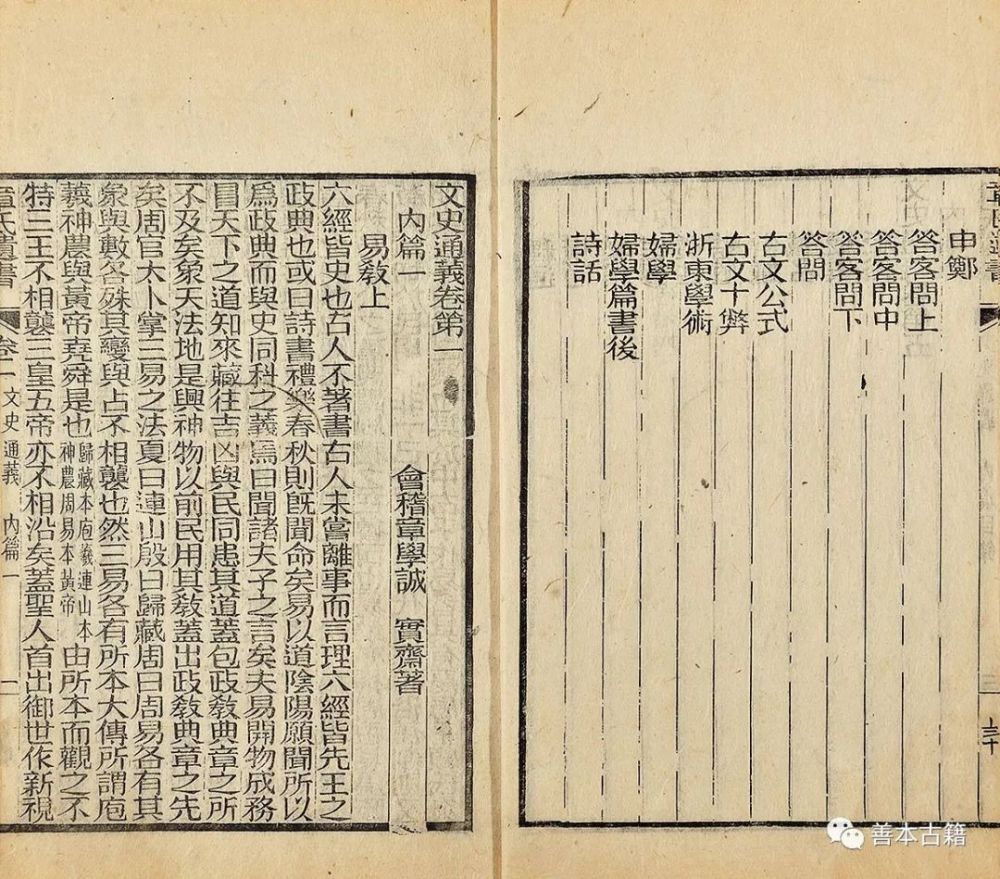 申鄭
答客問上
答客問中
答客問下
答問
古文公式
古文十弊
浙東學術
婦學
婦學篇書後
詩話
文史通義卷第一
會稽章學誠 實齋著
內篇一
易敎上
六經皆史也古人不著書古人未嘗離事而言理六經皆先王之
政典也或曰詩書禮樂春秋則旣聞命矣易以道陰陽願聞所以
爲政典而與史同科之義焉曰聞諸夫子之言矣夫易開物成務
冒天下之道知來藏往吉凶與民同患其道蓋包政敎典章之所
不及矣象天法地是興神物以前民用其敎蓋出政敎典章之先
矣周官太卜掌三易之法夏曰連山殷曰歸藏周曰周易各有其
象與數各殊其變與占不相襲也然三易各有所本大傳所謂庖
羲神農與黃帝堯舜是也歸藏本庖羲連山本神農周易本黃帝由所本而觀之不
特三王不相襲三皇五帝亦不相沿矣蓋聖人首出御世作新視
章氏遺書 卷一 文史通義 內篇一
善本古籍